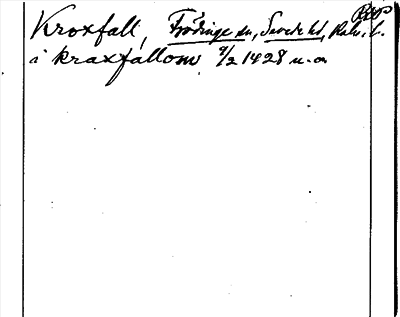 Kroxfall, Frödinge sn, Sevede hd, Kalm. l.
i kraxfallom 9/2 1428 u. a